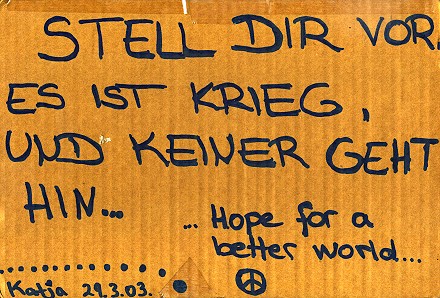 STELL DIR VOR,
ES IST KRIEG,
UND KEINER GEHT
HIN...
... Hope for a
better world...
Katja 29.3.03.